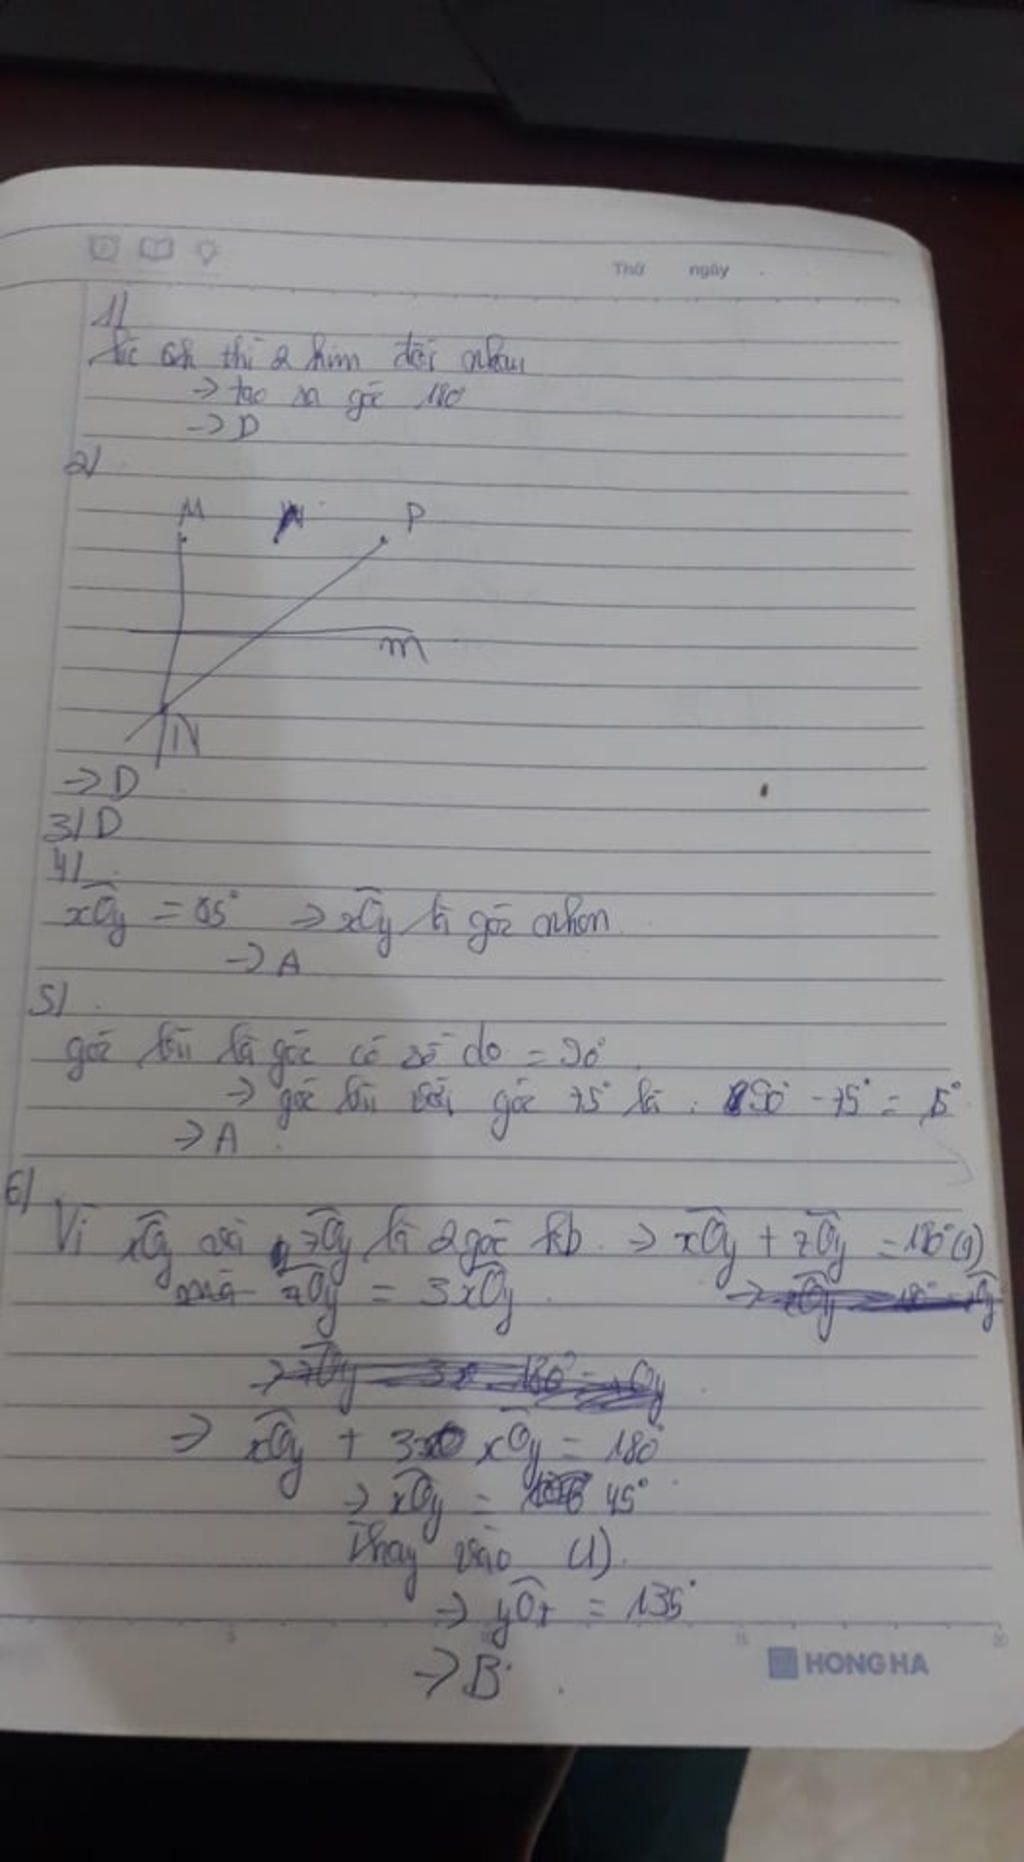 Thứ ngày
1/
lúc 6h thì 2 kim đối nhau
→ tạo ra góc 180°
→ D
2/
M N P
m
N
→ D
3/ D
4/
xOy = 85° → xOy là góc nhọn
→ A
5/
góc là góc có số đo = 90°
→ góc với góc 75° là : 90° - 75° = 15°
→ A
6/
Vì xOy và zOy là 2 góc kb → xOy + zOy = 180° (1)
mà zOy = 3xOy
→ xOy + 3 xOy = 180°
→ xOy = 45°
Thay vào (1)
→ yOz = 135°
→ B
HONG HA